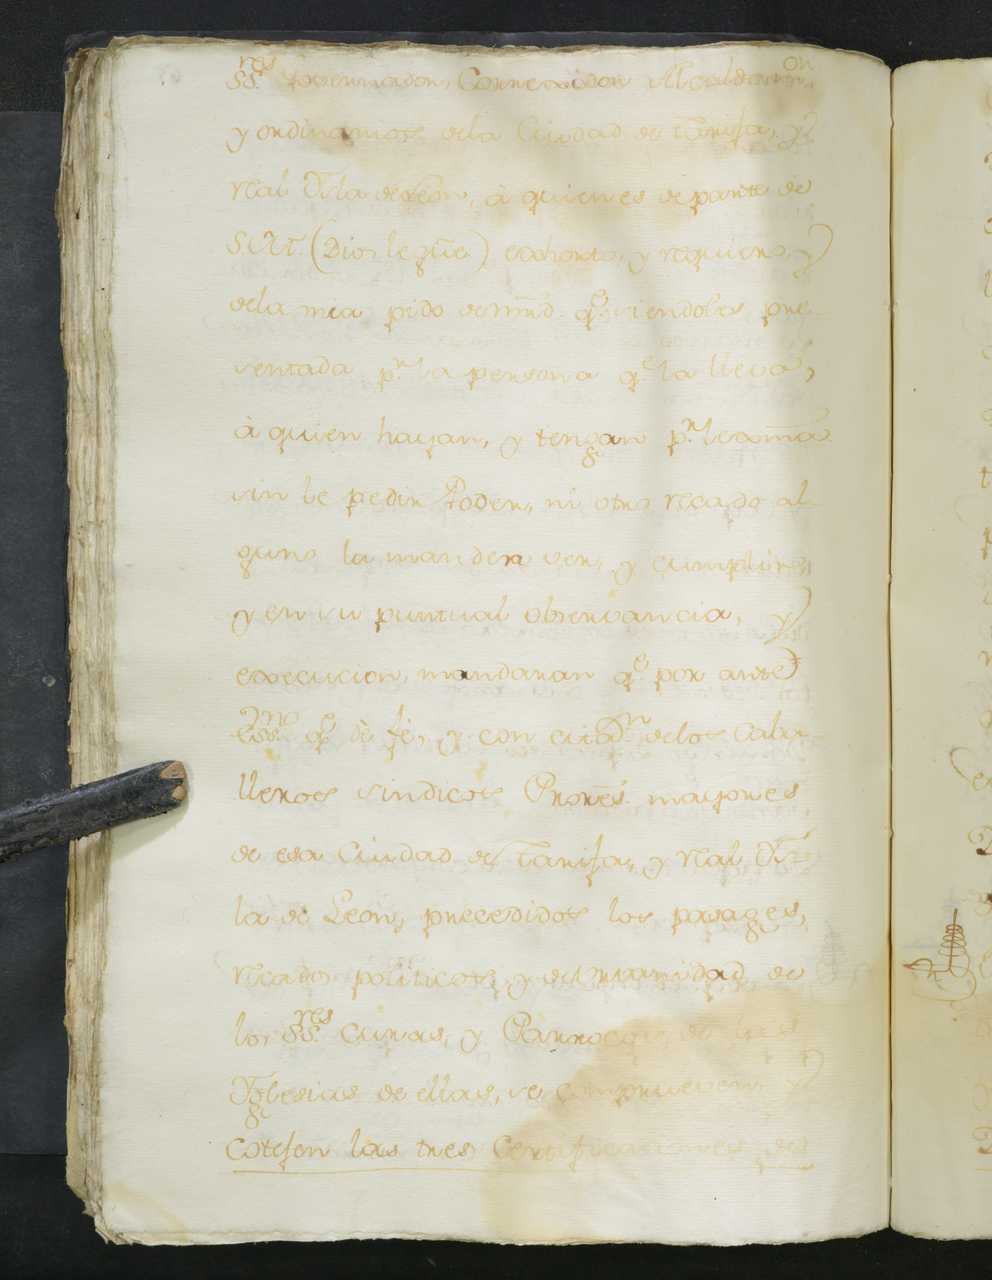 SS.res Governador, Corregidor Alcalde mor,
y ordinarios de la Ciudad de Tarifa, y
Real Villa de Leon, à quienes de parte de
S. M. (Dios le gũe) exhorto, y requiero, y
de la mia pido de mrd. q.e siendoles pre
sentada p.r la persona q.e la lleva,
à quien hayan, y tengan p.r lexma
sin le pedir Poder, ni otro recado al
guno la manden ver, y cumplir,
y en su puntual observancia, y
execucion, mandaran q.e por ante
Ess.no q.e dè fè, y con citaz.n de los Caba
lleros sindicos Prores. mayores
de esa Ciudad de Tarifa, y Real Vi
la de Leon, precedidos los pasages,
recados politicos, y de urbanidad de
los SS.res Curas, y Parrocos de las
Yglesias de ellas, se comprueven, y
cotejen las tres Certificaciones de